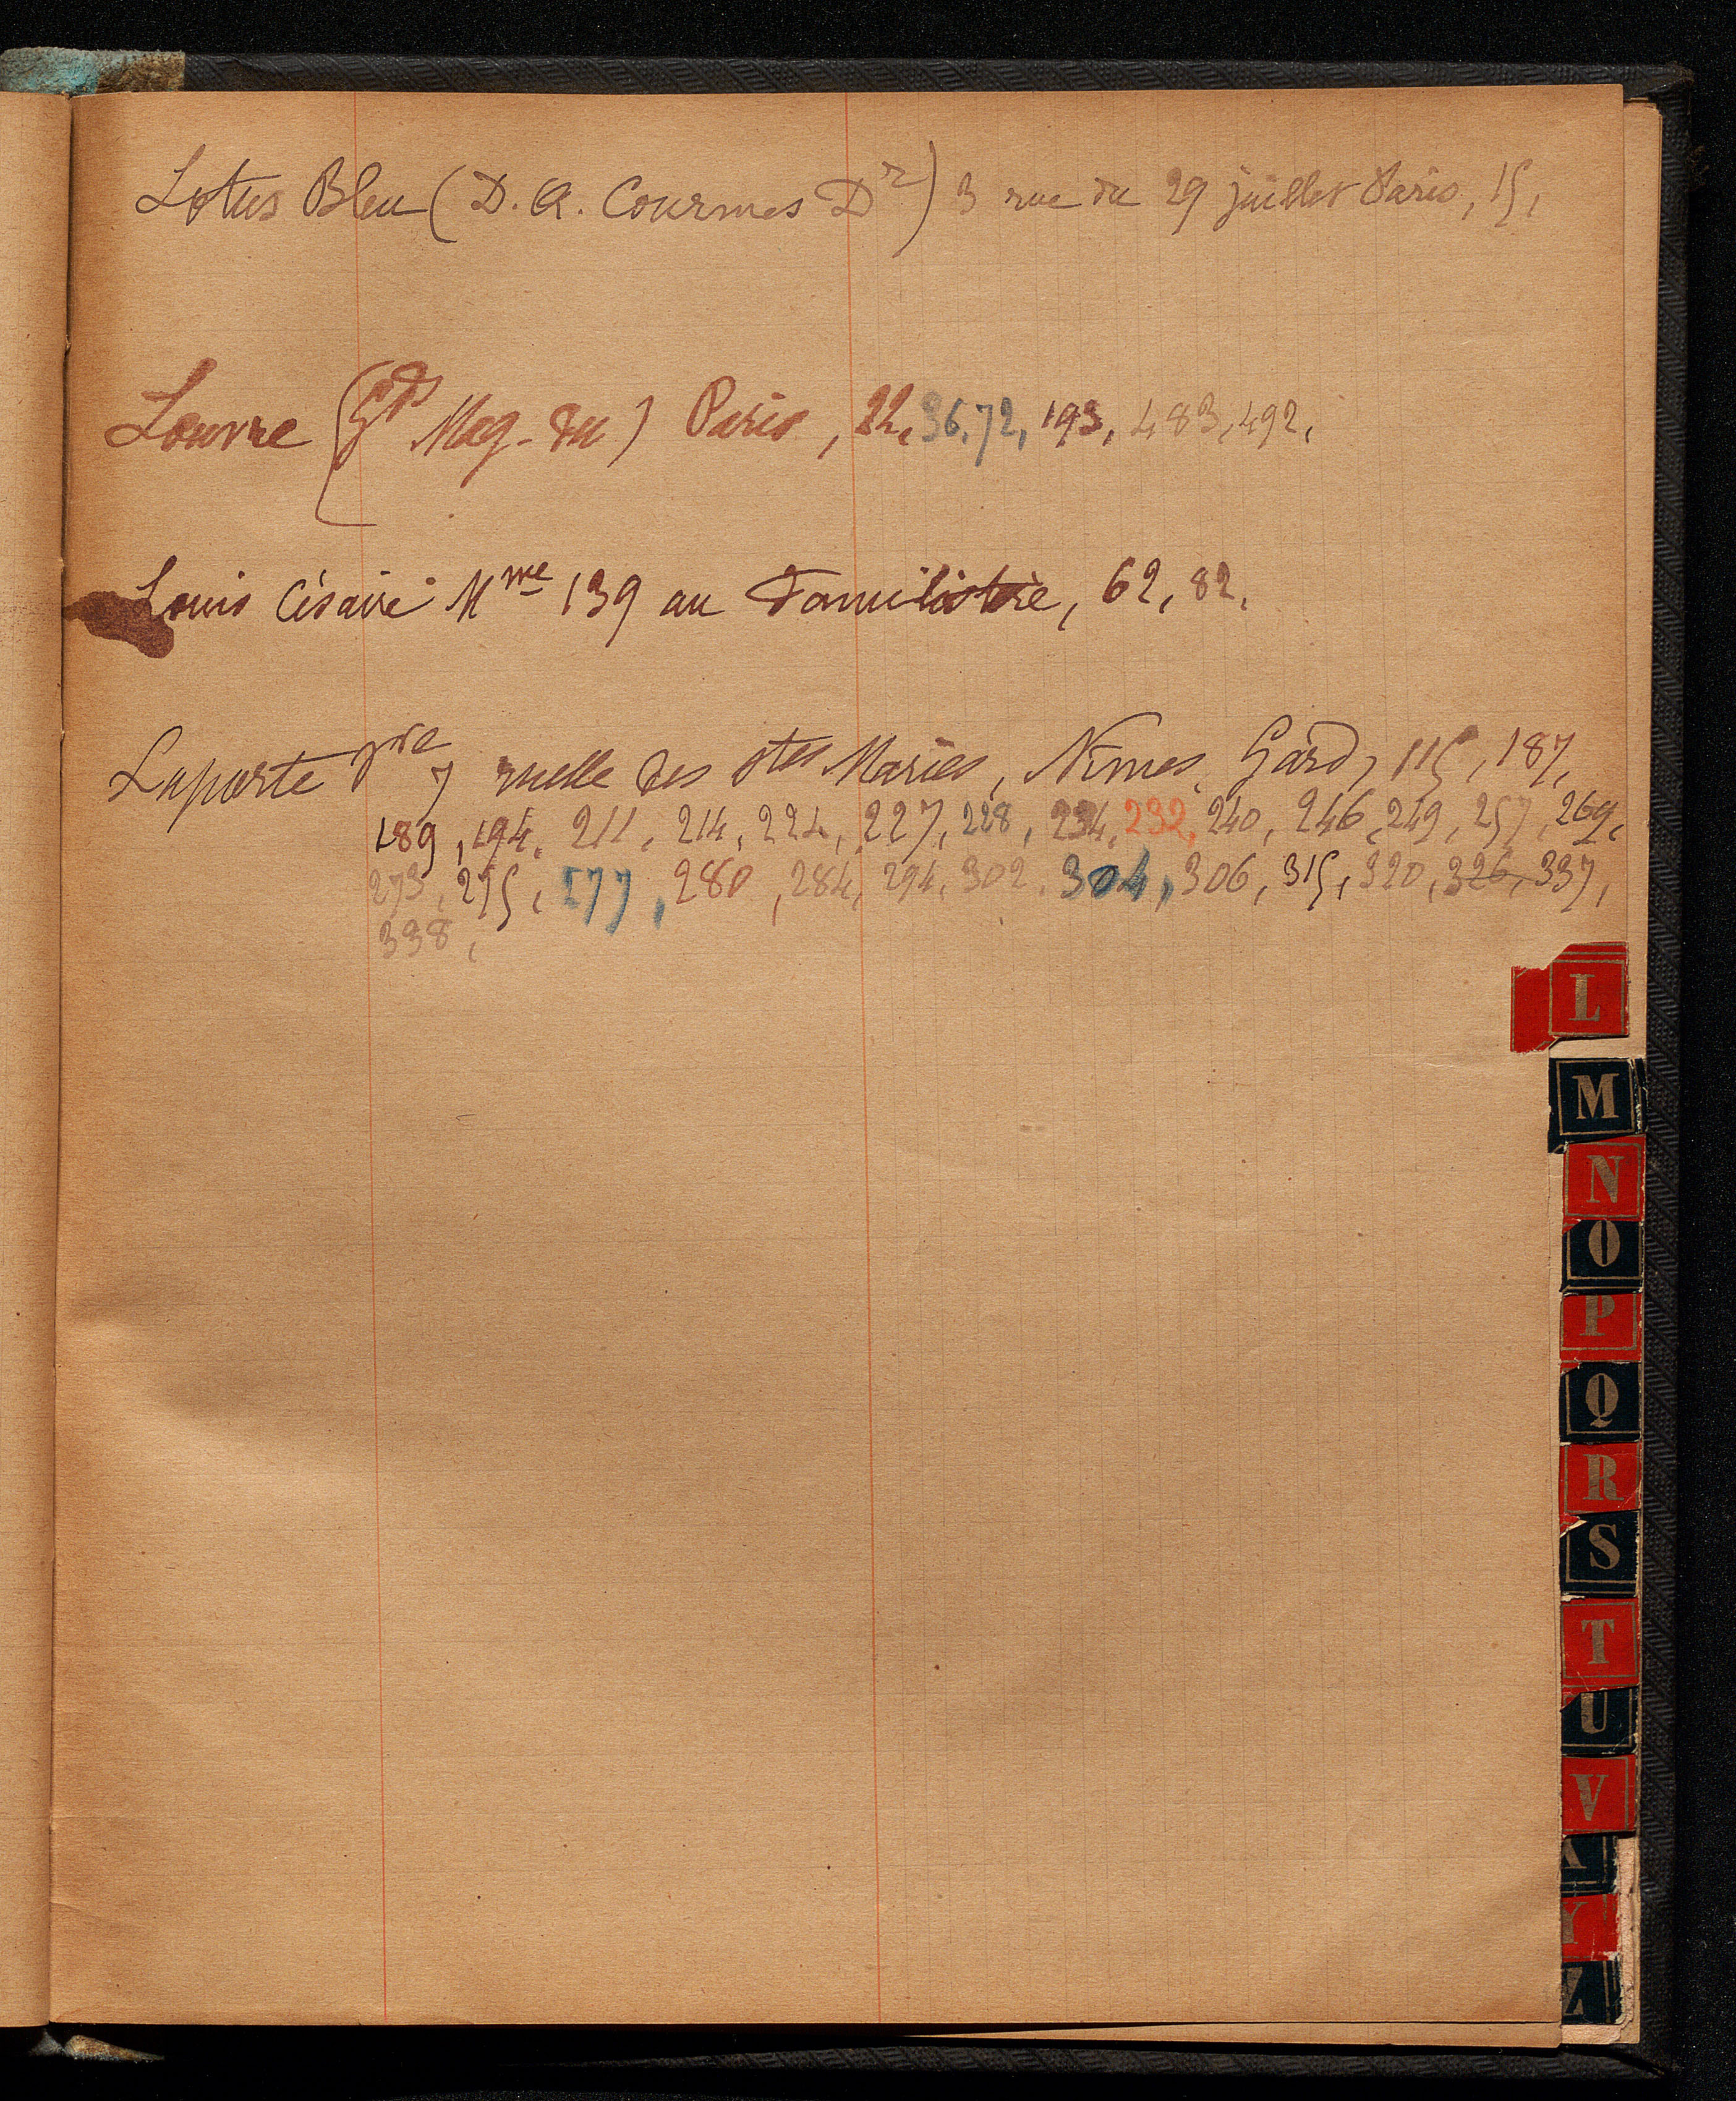 Lotus Bleu (D. A. Courmes Dr) 3 rue du 29 juillet Paris, 15,
Louvre (Gds Mag. du) Paris, 22, 36, 72, 193, 483, 492,
Louis Césaire Mme 139 au Familistère, 62, 82,
Laporte 7 ruelle des Stes Maries, Nîmes, Gard, 115, 187,
189, 194, 211, 214, 224, 227, 228, 234, 232, 240, 246, 249, 257, 269,
273, 275, 277, 280, 284, 294, 302, 304, 306, 315, 320, 326, 337,
338,
L
M
N
O
P
Q
R
S
T
U
V
X
Y
Z